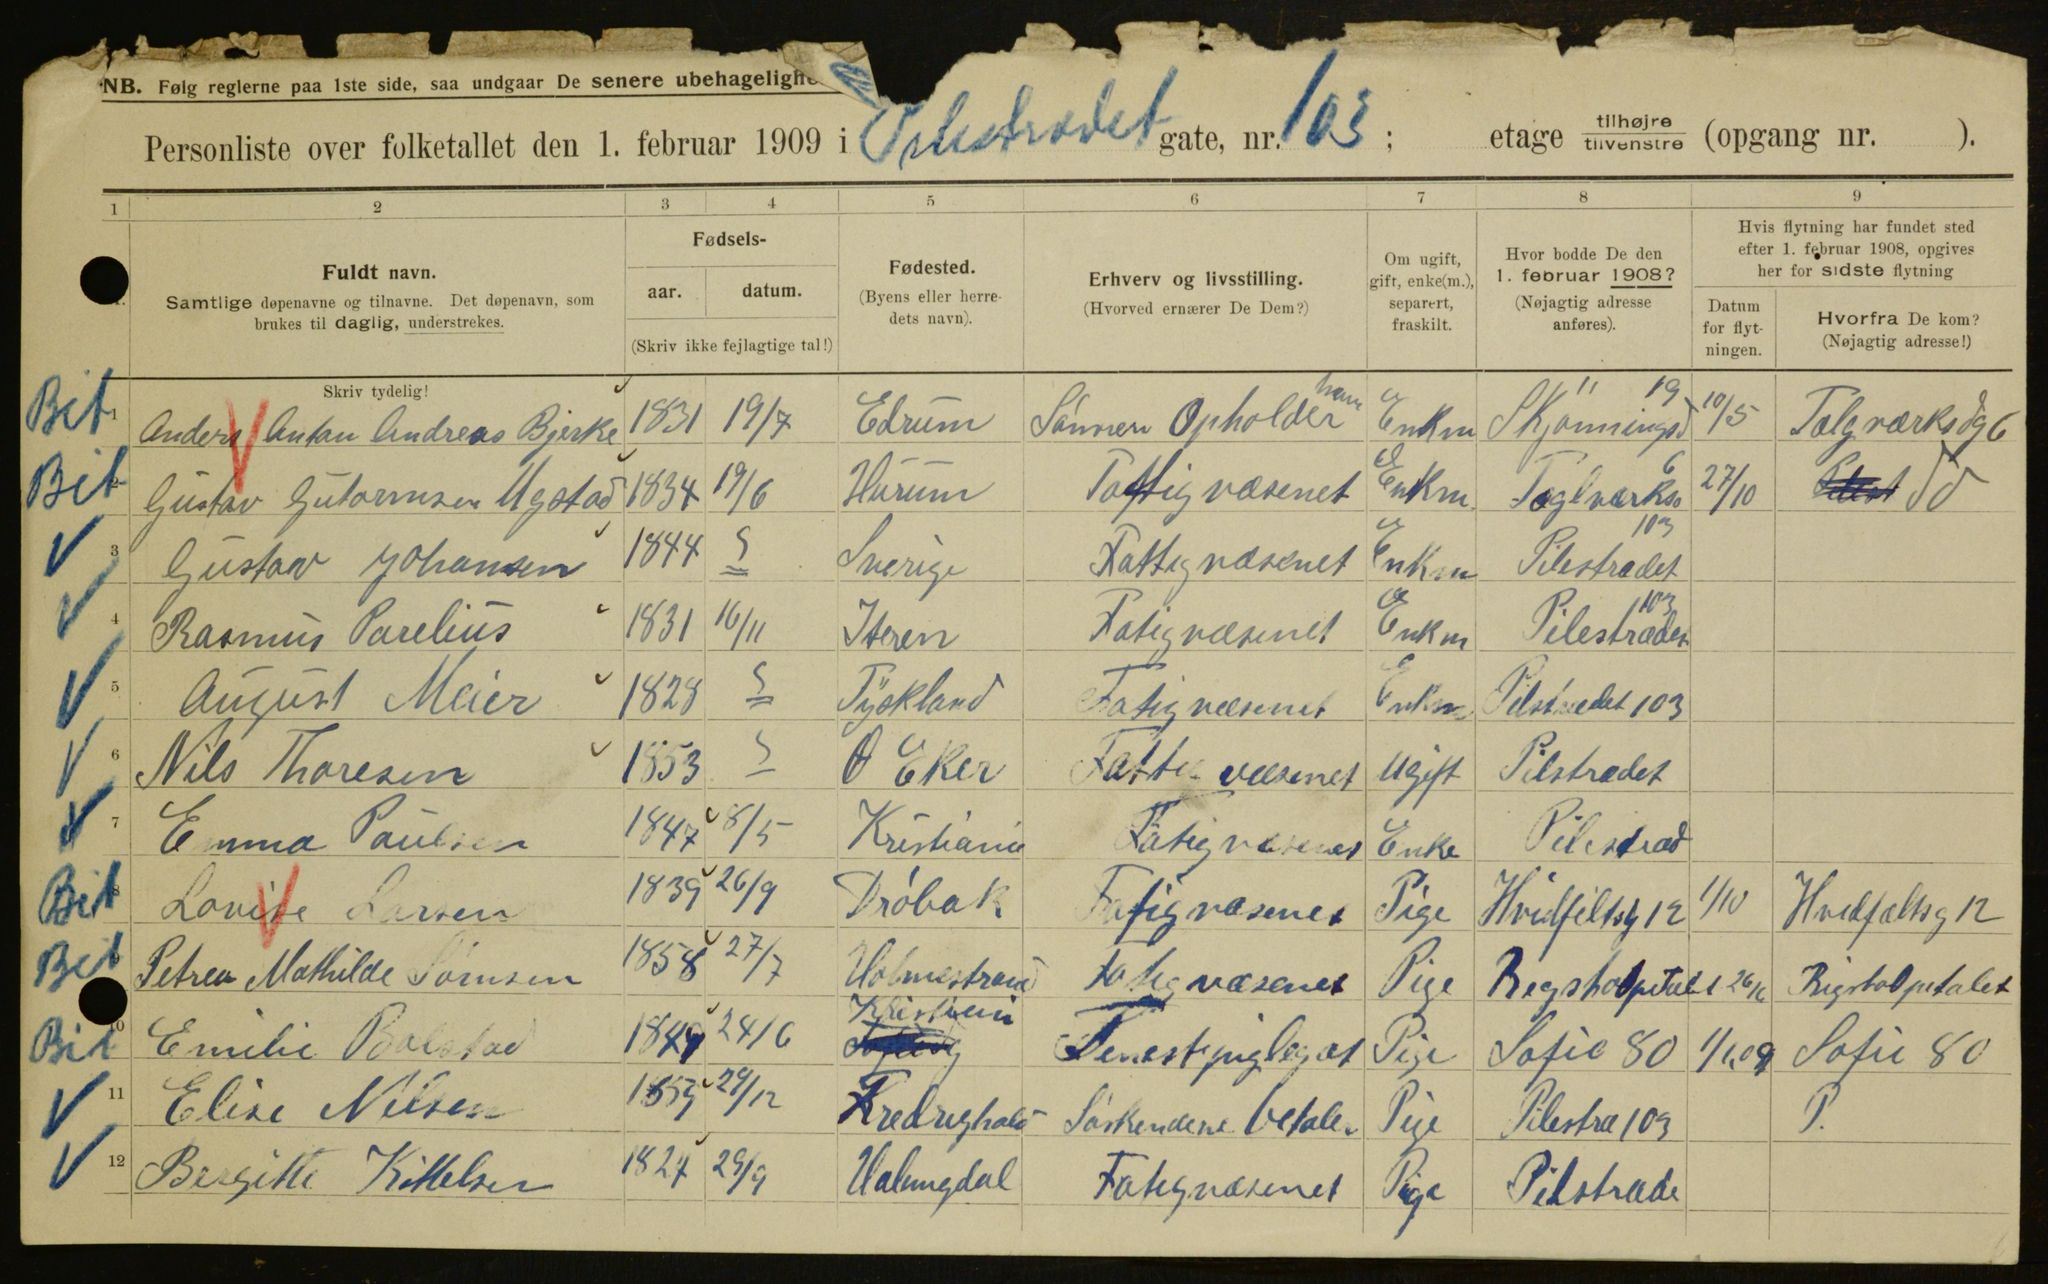 NB. Følg reglerne paa 1ste side, saa undgaar De senere ubehagelighe
Personliste over folketallet den 1. februar 1909 i Pilestrædet gate, nr. 103; etage tilhøjre tilvenstre (opgang nr. ).
1 2 3 4 5 6 7 8 9
Fuldt navn.
Samtlige døpenavne og tilnavne. Det døpenavn, som
brukes til daglig, understrekes.
Skriv tydelig!
Fødsels-
aar. datum.
(Skriv ikke fejlagtige tal!)
Fødested.
(Byens eller herre-
dets navn).
Erhverv og livsstilling.
(Hvorved ernærer De Dem?)
Om ugift,
gift, enke(m.),
separert,
fraskilt.
Hvor bodde De den
1. februar 1908?
(Nøjagtig adresse
anføres).
Hvis flytning har fundet sted
efter 1. februar 1908, opgives
her for sidste flytning
Datum
for flyt-
ningen.
Hvorfra De kom?
(Nøjagtig adresse!)
Bit 1 Anders Antau Andreas Bjerke 1831 19/7 Edrum Sönnen Opholder ham Enkm Skjönningsd 11 19 10/5 Tælgværksdg 6
Bit 2 Gustav Gutormsen Ugstad 1834 19/6 Hurum Fattigvæsenet Enkm Teglværksg 6 27/10 do
3 Gustav Johansen 1844 ? Sverige Fattigvæsenet Enkm Pilestrædet 103
4 Rasmus Parelius 1831 16/11 Fatigvæsenet Enkm Pilestrædet 103
5 August Meier 1828 ? Tyskland Fatigvæsenet Enkm Pilstrædet 103
6 Nils Thoresen 1853 ? Ö Eker Fattigvæsenet Ugift Pilstrædet
7 Emma Paulsen 1847 8/5 Kristiania Fatigvæsenet Enke Pilestræd
Bit 8 Lovise Larsen 1839 26/9 Dröbak Fatigvæsenet Pige Hvidfeltsg 12 1/10 Hvidfæltsg 12
Bit 9 Petrea Mathilde 1858 27/7 Holmestrand Fatigvæsenet Pige Regshospitalet Rigshospitalet
Bit 10 Emilie Bolstad 1849 24/6 Kristiani Pige Sofie 80 Sofie 80
11 Elise Nilsen 1859 29/12 Fredrighald Söskendene betaler Pige Pilestræ 103 P.
12 Bergitte Kittelsen 1824 29/9 Halingdal Fatigvæsenet Pige Pilstræde